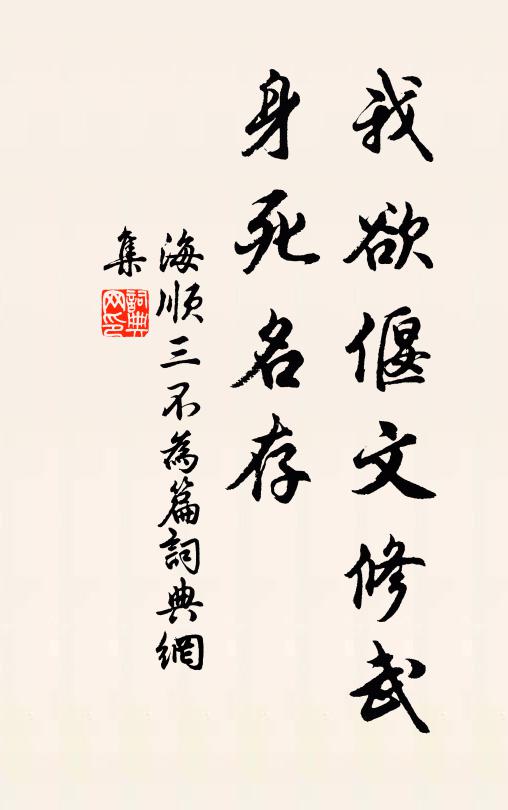 我欲偃文修武
身死名存
海順三不為篇詞典網
集
詞典
网印